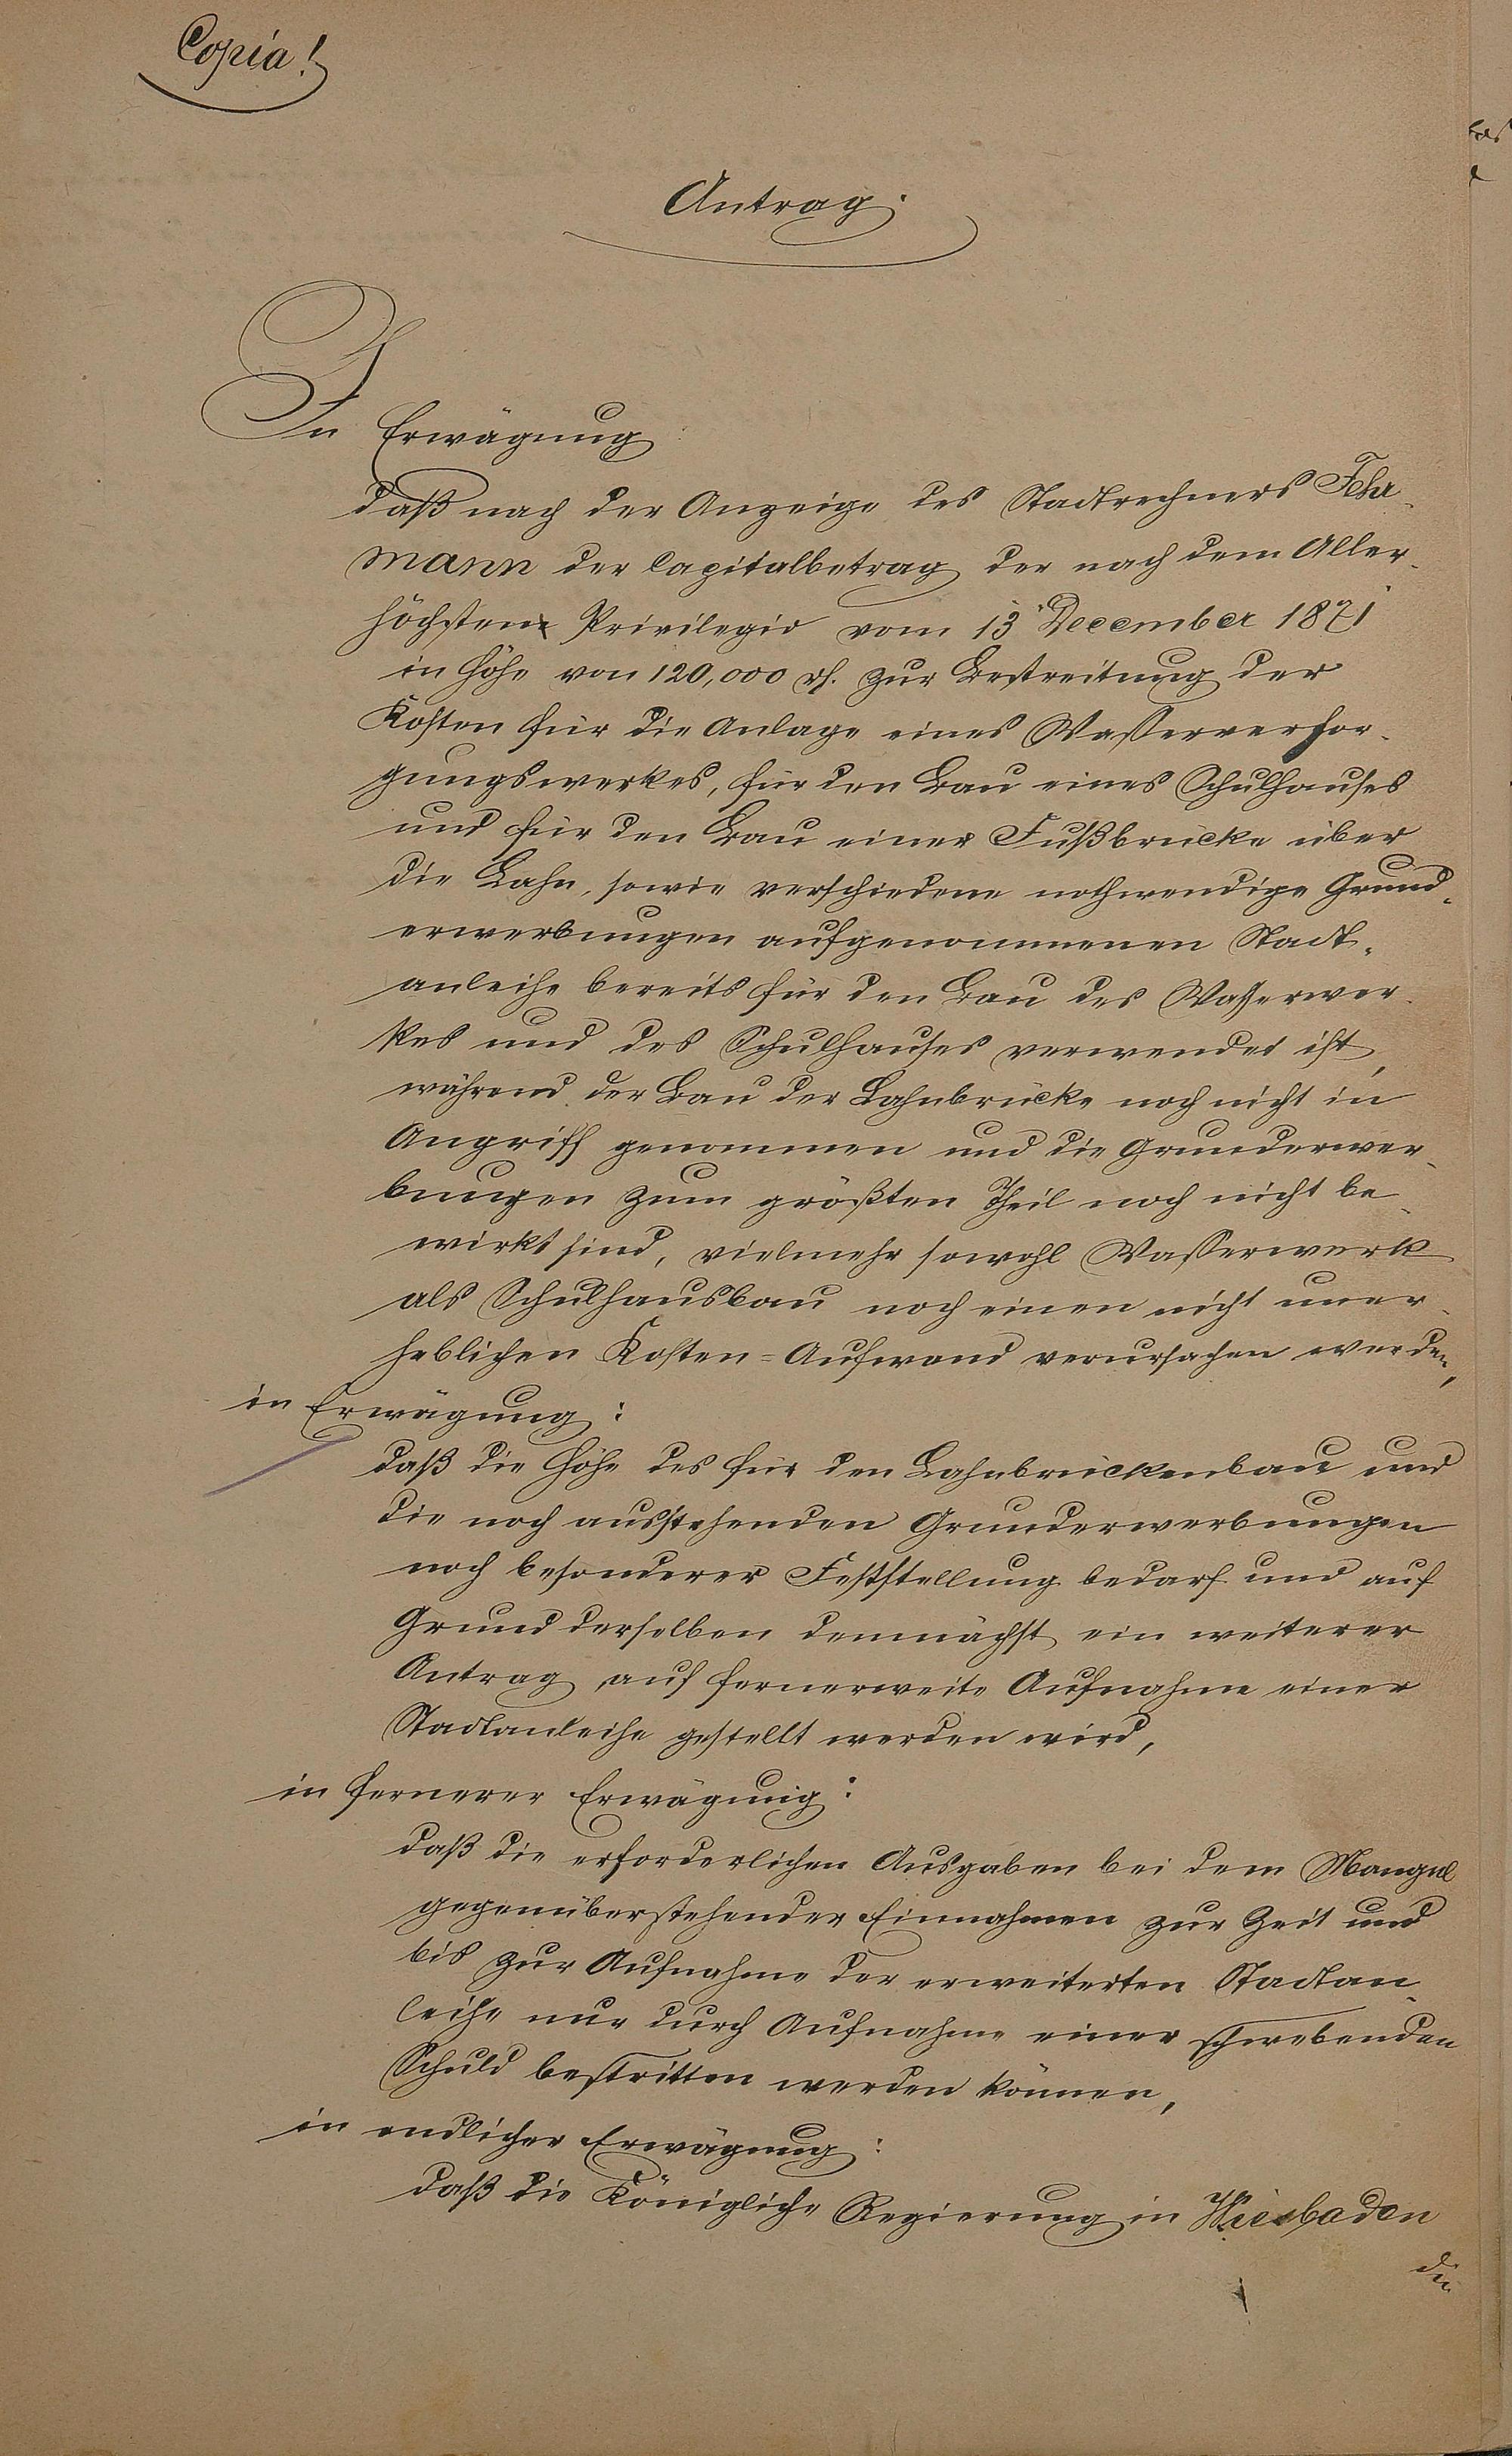 Copia!
Antrag.
In Erwägung
daß nach der Anzeige des Stadtrechners Fehr-
mann der Capitalbetrag der nach dem Aller-
höchsten Privilegio vom 13 December 1871
in Höhe von 120,000 rh. zur Bestreitung der
Kosten für die Anlage eines Wasserversor-
gungswerkes, für den Bau eines Schulhauses
und für den Bau einer Fußbrücke über
die Lahn, sowie verschiedene nothwendige Grund-
erwerbungen aufgenommenen Stadt-
anleihe bereits für den Bau des Wasserwer-
kes und des Schulhauses verwendet ist,
während der Bau der Lahnbrücke noch nicht in
Angriff genommen und die Grunderwer-
bungen zum größten Theil noch nicht be-
wirkt sind, vielmehr sowohl Wasserwerk
als Schulhausbau noch einen nicht uner-
heblichen Kosten=Aufwand verursachen werden,
in Erwägung:
daß die Höhe des für den Lahnbrückenbau und
die noch ausstehenden Grunderwerbungen
noch besonderer Feststellung bedarf und auf
Grund derselben demnächst ein weiterer
Antrag auf fernerweite Aufnahme einer
Stadtanleihe gestellt werden wird,
in fernerer Erwägung:
daß die erforderlichen Ausgaben bei dem Mangel
gegenüberstehender Einnahmen zur Zeit und
bis zur Aufnahme der erweiterten Stadtan-
leihe nur durch Aufnahme einer schwebenden
Schuld bestritten werden können,
in endlicher Erwägung:
daß die Königliche Regierung in Wiesbaden
die